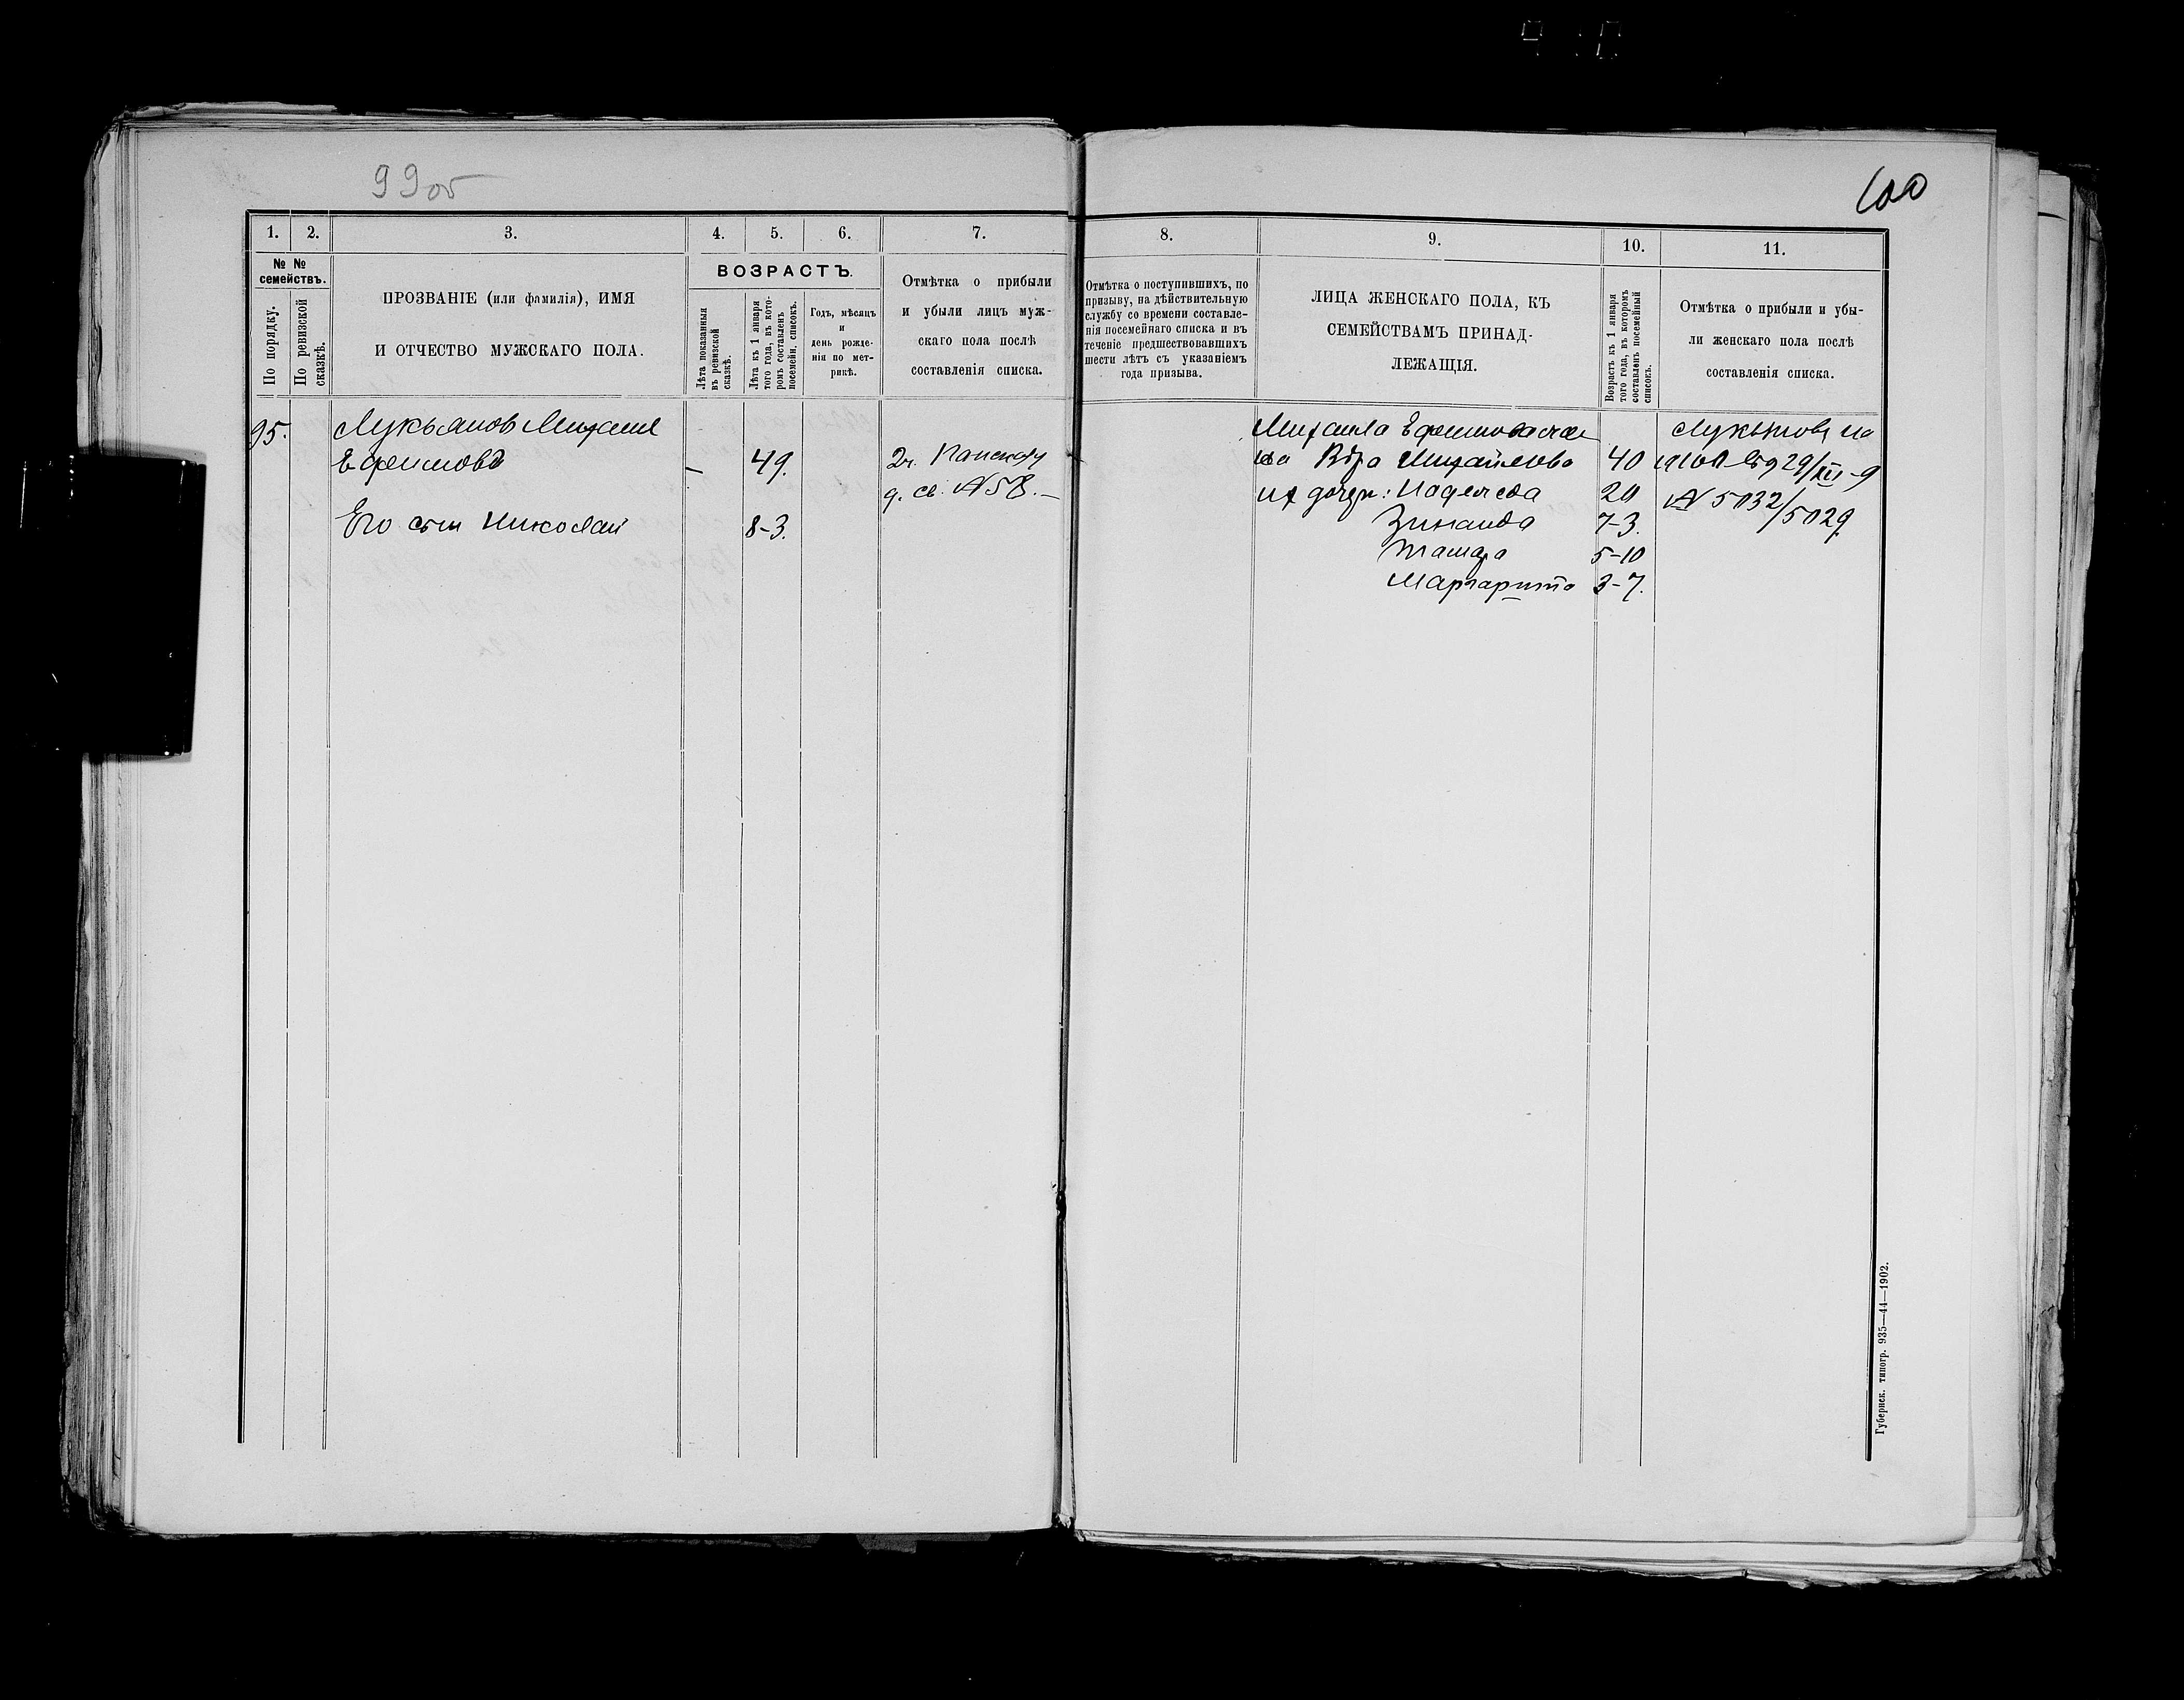 99об
100
1.
2.
3.
4.
5.
6.
7.
8.
9.
10.
11.
№ №
семействъ.
По порядку.
По ревизской
сказкѣ.
ПРОЗВАНІЕ (или фамилія), ИМЯ
И ОТЧЕСТВО МУЖСКАГО ПОЛА.
ВОЗРАСТЪ.
Лѣта показанныя
въ ревизской
сказкѣ.
Лѣта къ 1 января
того года, въ кото-
ромъ составленъ
посемейн. списокъ.
Годъ, мѣсяцъ
и
день рожде-
нія по мет-
рикѣ.
Отмѣтка о прибыли
и убыли лицъ муж-
скаго пола послѣ
составленія списка.
Отмѣтка о поступившихъ, по
призыву, на дѣйствительную
службу со времени составле-
нія посемейнаго списка и въ
теченіе предшествовавшихъ
шести лѣтъ съ указаніемъ
года призыва.
ЛИЦА ЖЕНСКАГО ПОЛА, КЪ
СЕМЕЙСТВАМЪ ПРИНАД-
ЛЕЖАЩІЯ.
Возрастъ къ 1 января
того года, въ которомъ
составленъ посемейный
списокъ.
Отмѣтка о прибыли и убы-
ли женскаго пола послѣ
составленія списка.
95.
Лукьянов Михаил
Ефимовъ
49.
Его сын Николай
8-3.
2ч.
д. св. № 58.
Михаила Ефимова
Вѣра Михайлова 40
их дочери: Надежда 20
Зинаида 7-3.
Тамара 5-10
Маргарита 3-7.
29/XII-9
№ 5032/5029
Губернск. типогр. 935—44—1902.